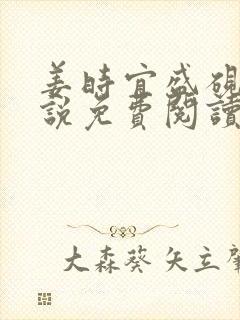 姜時宜盛硯
説免費閱讀
大森葵 矢立肇